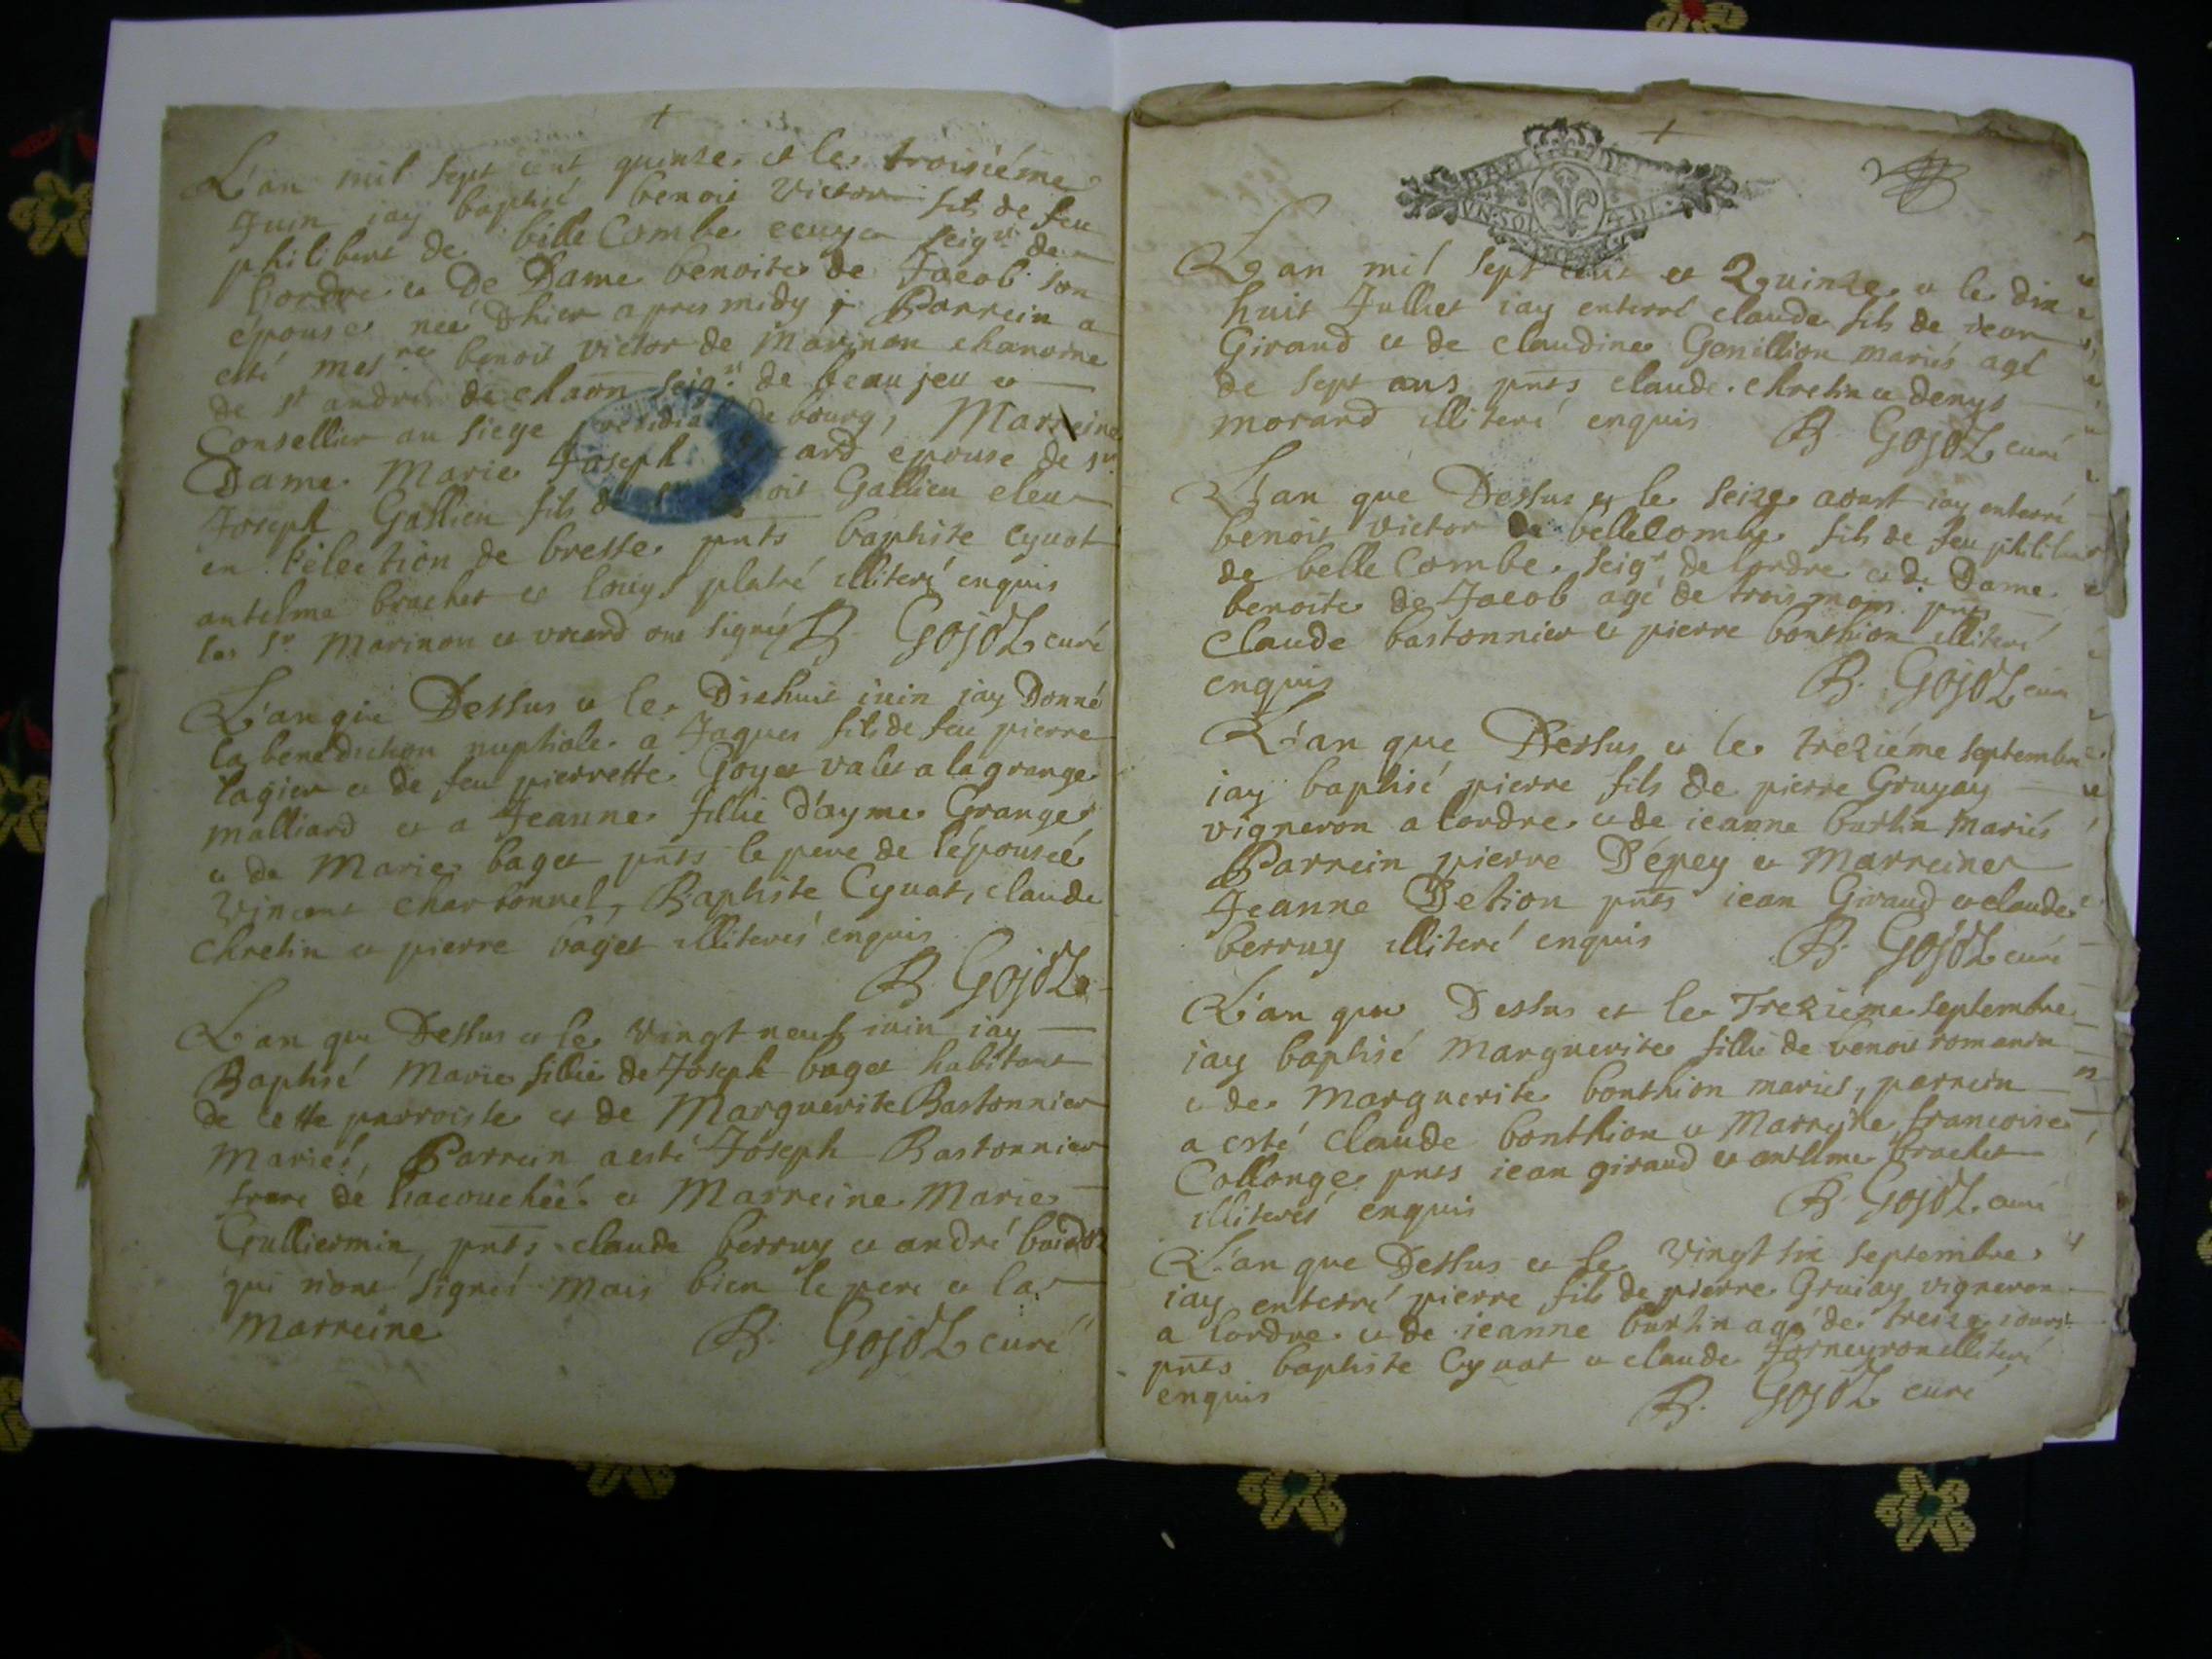 L'an mil sept cent quinze et le troisiéme
Juin jay baptisé benoit Victor fils de feu
philibert de belle Combe ecuyer seigr de
Lordre et De Dame benoite de Jacob son
epouse neé Dhier apres midy Parrein a
esté mesre benoit victor de Marinon chanoine
de st andré de chaon seigr de beaujeu et
Consellier au siege presidial de bourg, Marreine
Dame Marie Joseph ard epouse de sr
Joseph Gallien fils d oit Gallien eleu
en l'élection de bresse pnts baptiste Cynat
antelme brachet et louys platré illiteré enquis
les Sr Marinon et vicard ont signés B. GojoZ curé
L'an que Dessus et le Dixhuit iuin jay Donné
la benediction nuptiale a Jaques fils de feu pierre
lagier et de feu pierrette Goyet valet a la grange
malliard et a Jeanne fillie d'ayme Grange
et de Marie baget pnts le pere de l'épouseé
Vincent charbonnel, Baptiste Cynat, claude
chretin et pierre baget illiterés enquis
B. GojoZ
L'an que Dessus et le Vingt neuf iuin jay
Baptisé Marie fillie de Joseph baget habitant
de cette parroisse et de Marguerite Bastonnier
Mariés, Parrein a esté Joseph Bastonnier
frere de l'acouchéé et Marreine Marie
Gulliermin, pnts claude berruy et andré
qui n'ont signés mais bien le pere et la
Marreine B. GojoZ curé
BRESSE UN SOL 4 DE.
L'an mil sept cent et Quinze et le dix
huit Julliet jay enterré claude fils de jean
Giraud et de claudine Genillion mariés agé
de sept ans pnts claude chretin et denys
morand illiteré enquis B. GojoZ curé
L'an que Dessus et le seize aoust jay enterré
benoit victor de belleCombe fils de feu philibert
de belle Combe seigr de lordre et de Dame
benoite de Jacob agé de trois mois pnts
Claude bastonnier et pierre bonthion illiteré
enquis B. GojoZ curé
L'an que Dessus et le treziéme septembre
jay baptisé pierre fils de pierre Gruyay
vigneron a lordre et de jeanne burlin Mariés
Parrein pierre Dépey et Marreine
Jeanne Detion pnts jean Giraud et claude
berruy illiteré enquis B. GojoZ curé
L'an que Dessus et le Treziéme septembre
jay baptisé Marguerite fillie de benoit romanin
et de Marguerite bonthion mariés, parrein
a esté Claude bonthion et Marreine francoise
Collonge pnts jean giraud et antelme brachet
illiterés enquis B. GojoZ curé
L'an que Dessus et le Vingt six septembre
jay enterré pierre fils de pierre Gruiay vigneron
a lordre et de jeanne burlin agé de treize jours
pnts baptiste Cynat et claude forneyron illiteré
enquis B. GojoZ curé